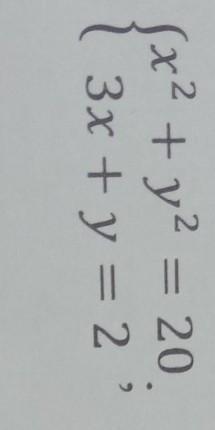 { x² + y² = 20
3x + y = 2 ;